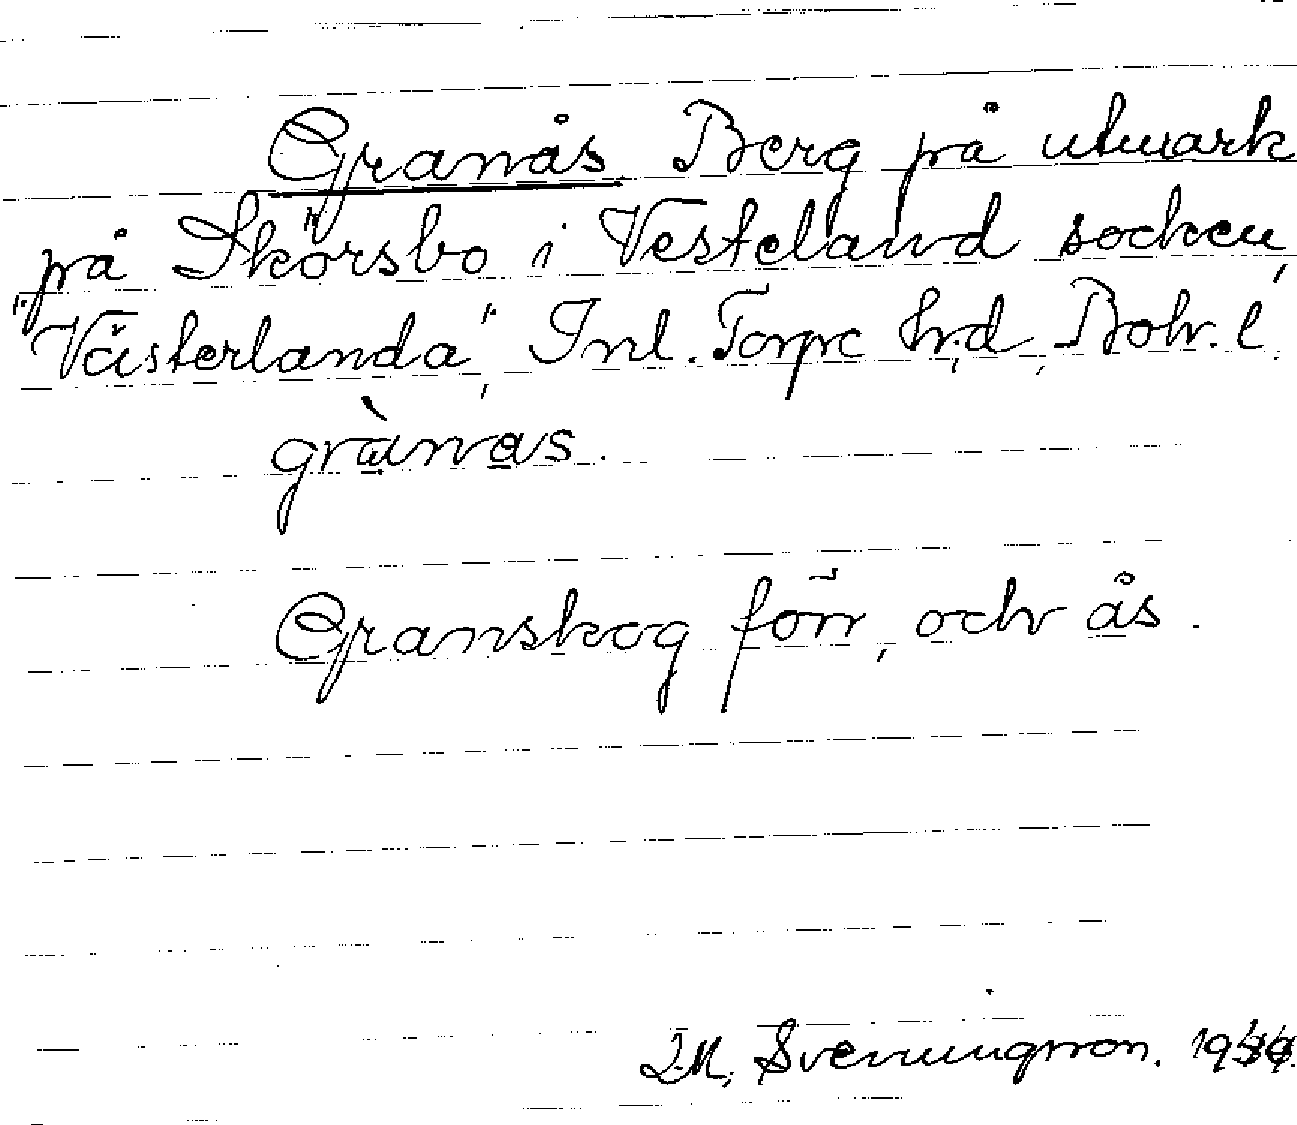 Granås Berg på utmark
på Skörsbo i Vesteland socken,
"Västerlanda", Inl. Torpe hrd, Boh. l.
grànas.
Granskog förr, och ås.
Svenungsson.